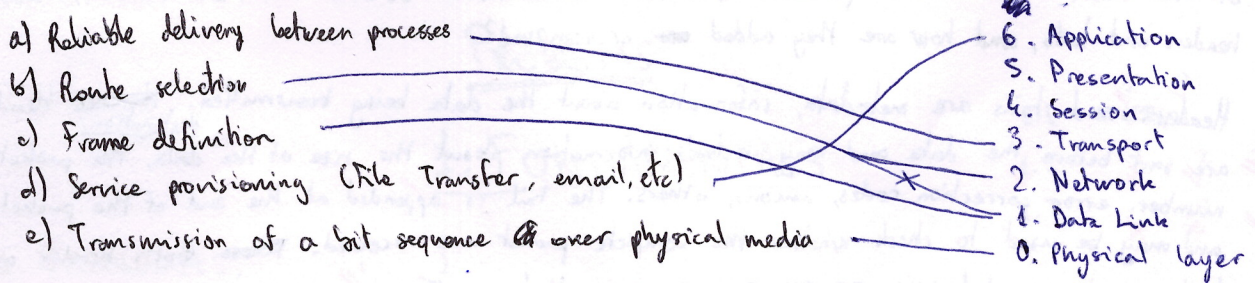 a) Reliable delivery between processes
b) Route selection
c) Frame definition
d) Service provisioning (File Transfer, email, etc)
e) Transmission of a bit sequence over physical media
6. Application
5. Presentation
4. Session
3. Transport
2. Network
1. Data Link
0. Physical layer